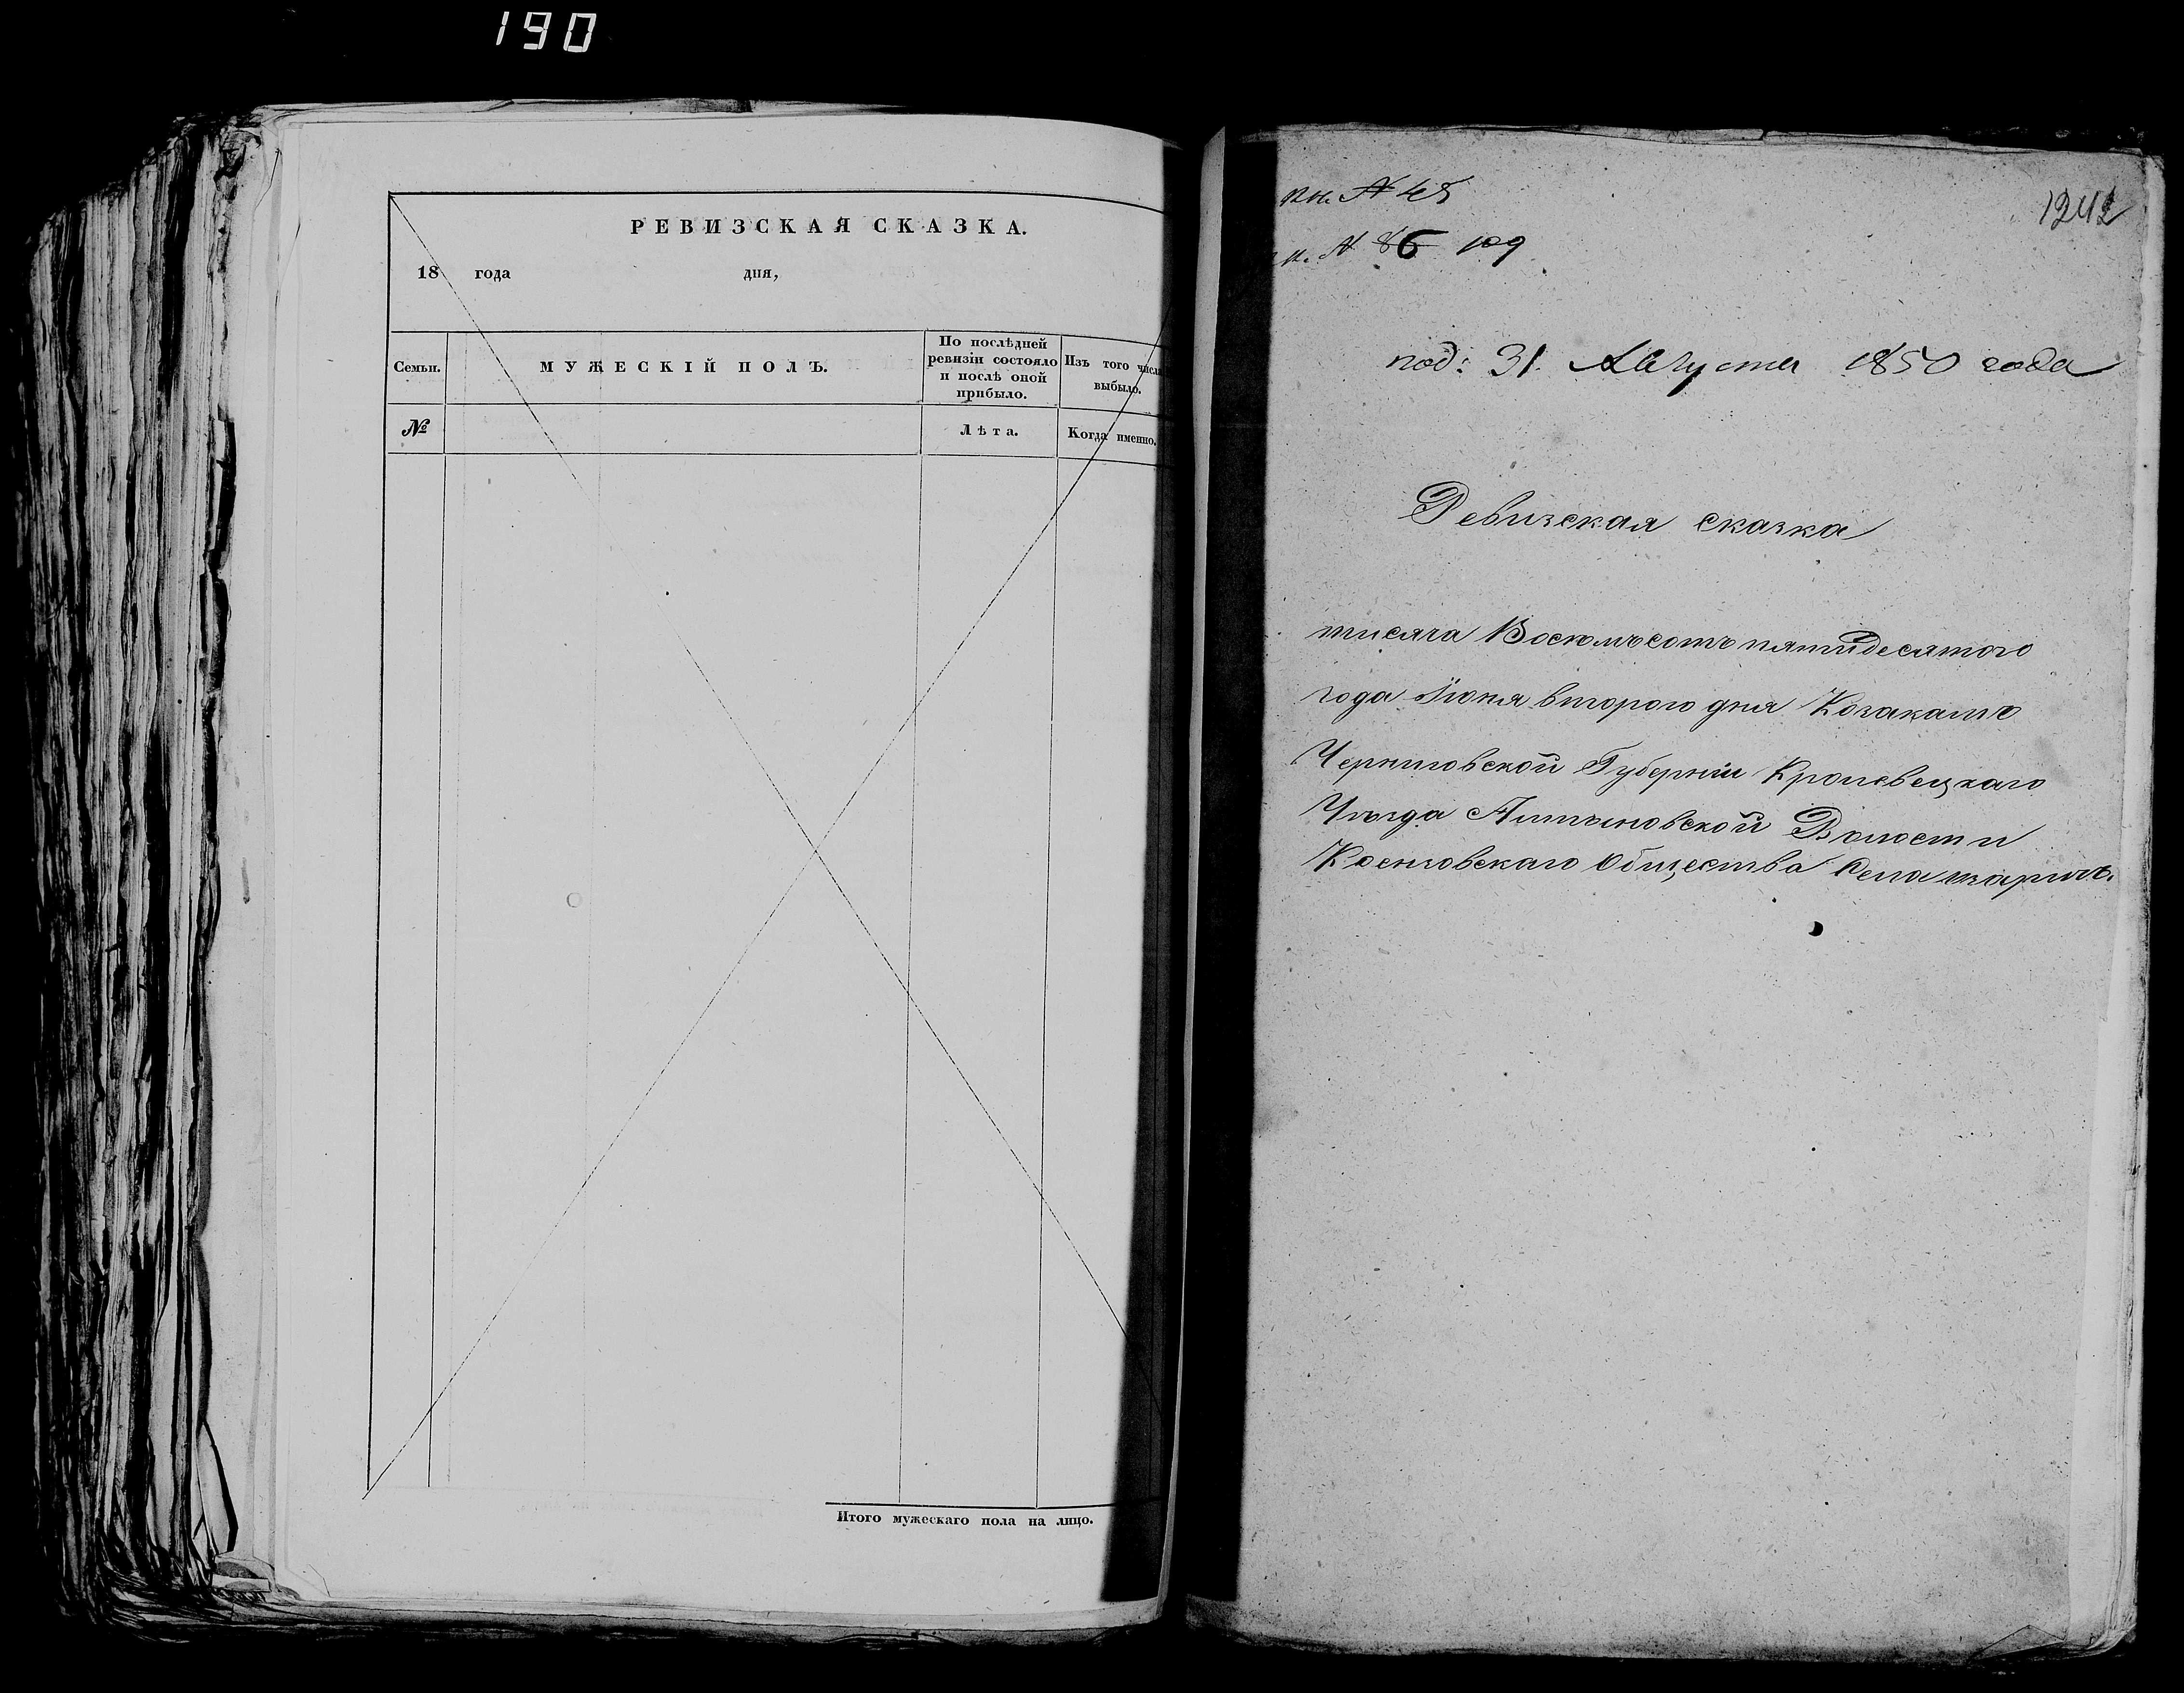 190
РЕВИЗСКАЯ СКАЗКА.
18 года дня,
Семьи.
МУЖЕСКІЙ ПОЛЪ.
По послѣдней
ревизіи состояло
и послѣ оной
прибыло.
Изъ того числа
выбыло.
№
Лѣта.
Когда именно.
Итого мужескаго пола на лицо.
кн. № 48
109
1242
под: 31. Августа 1850 года
Ревизская сказка
тисяча Восемьсотъ пятидесятого
года Іюня второго дня Козакамъ
Черниговской Губерніи Кролевецкаго
Уѣзда Алтыновской Волости
Общества Села